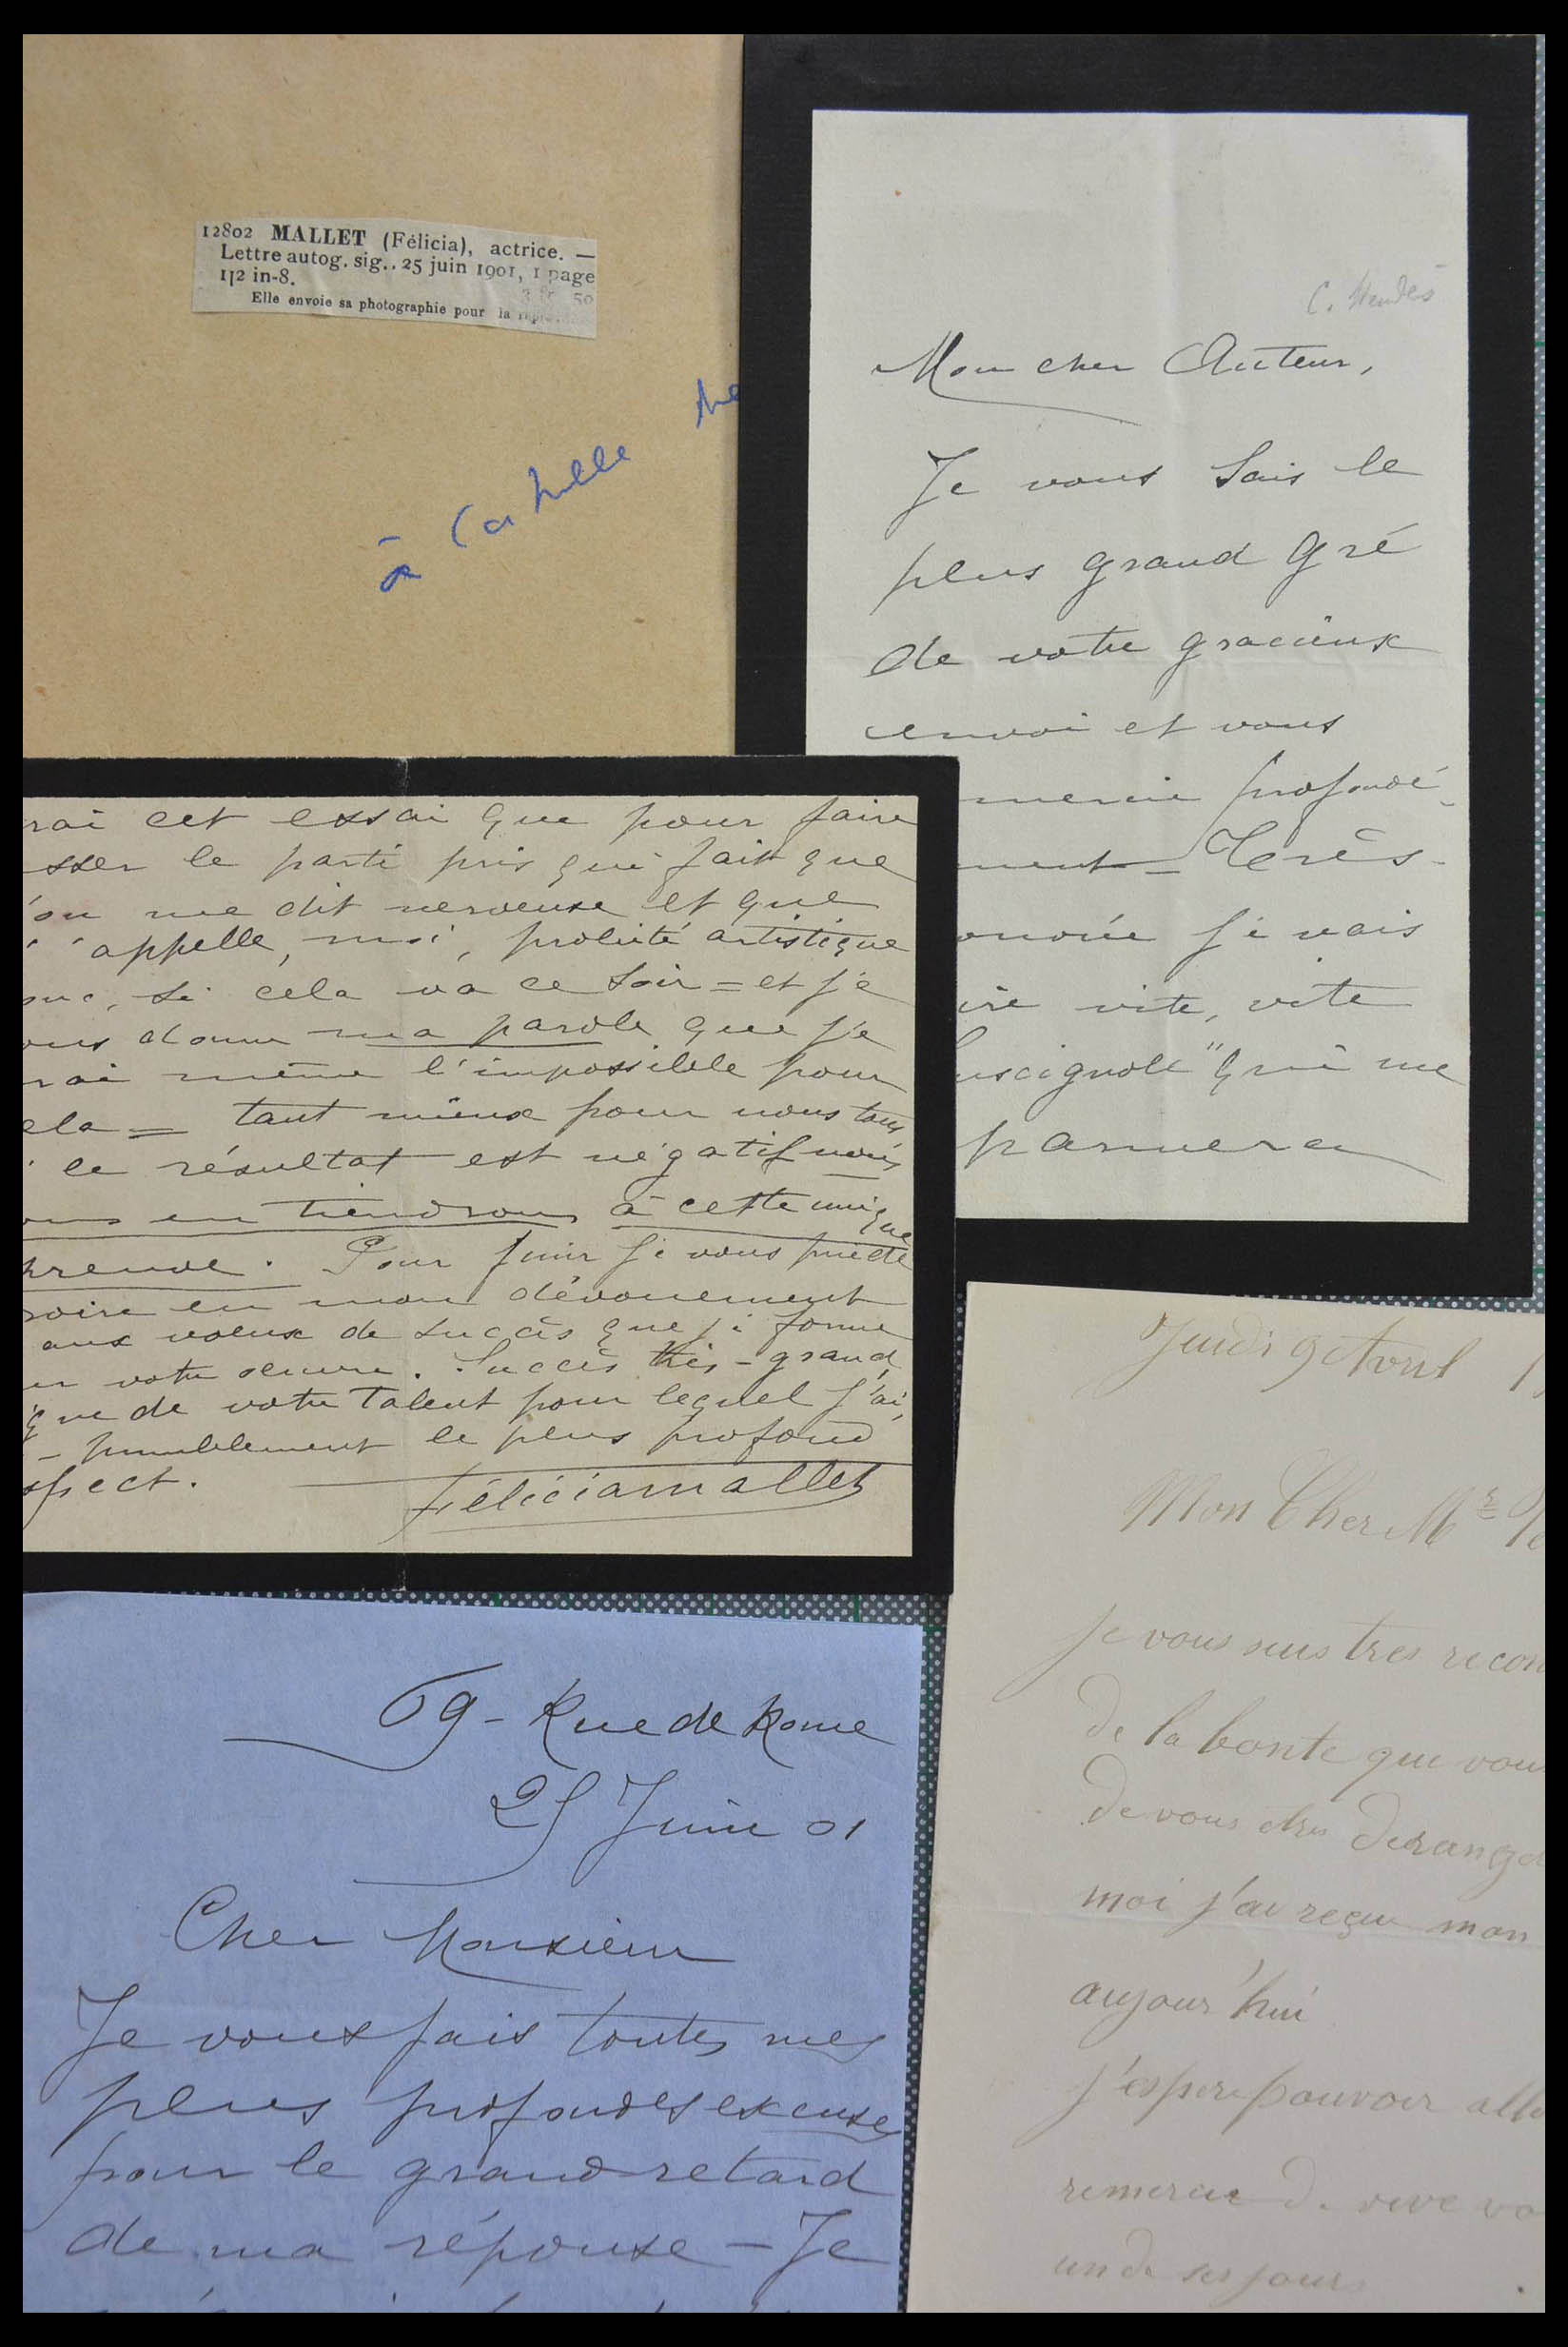 12802 MALLET (Félicia), actrice. —
Lettre autog. sig., 25 juin 1901, 1 page
1|2 in-8.
3 fr. 50
Elle envoie sa photographie pour la
à Catulle
C. Mendès
Mon cher Auteur,
Je vous Sais le
plus grand gré
de votre gracieux
envoi et vous
mercie profondé-
ment = Très-
je vais
ire vite, vite
uscignole" qui me
parvena
rai cet essai que pour faire
sser le parti pris qui fait que
on me dit nerveuse et que
j'appelle, moi, probité artistique
onc, si cela va ce Soir = et je
ous donne ma parole que je
rai même l'impossible pour
ela = tant mieux pour nous tous
le résultat est négatif nous
ous en tiendrons à cette unique
preuve. Pour finir je vous prie de
roire en mon dévouement
aux voeux de succès que je forme
ur votre oeuvre. Succès très-grand,
que de votre Talent pour lequel j'ai,
- humblement le plus profond
spect.
Félicia mallet
Jeudi 9 Avril 1
Mon Cher Mr
je vous suis tres recon
De la bonte que vou
De vous etre Derange
moi j'ai reçu mon
aujour'hui
j'espere pouvoir alle
remercie De vive vo
un de ses jours
69 - Rue de Rome
25 Juin 01
Cher Monsieur
Je vous fais toutes mes
plus profondes excuses
pour le grand retard
de ma réponse — Je